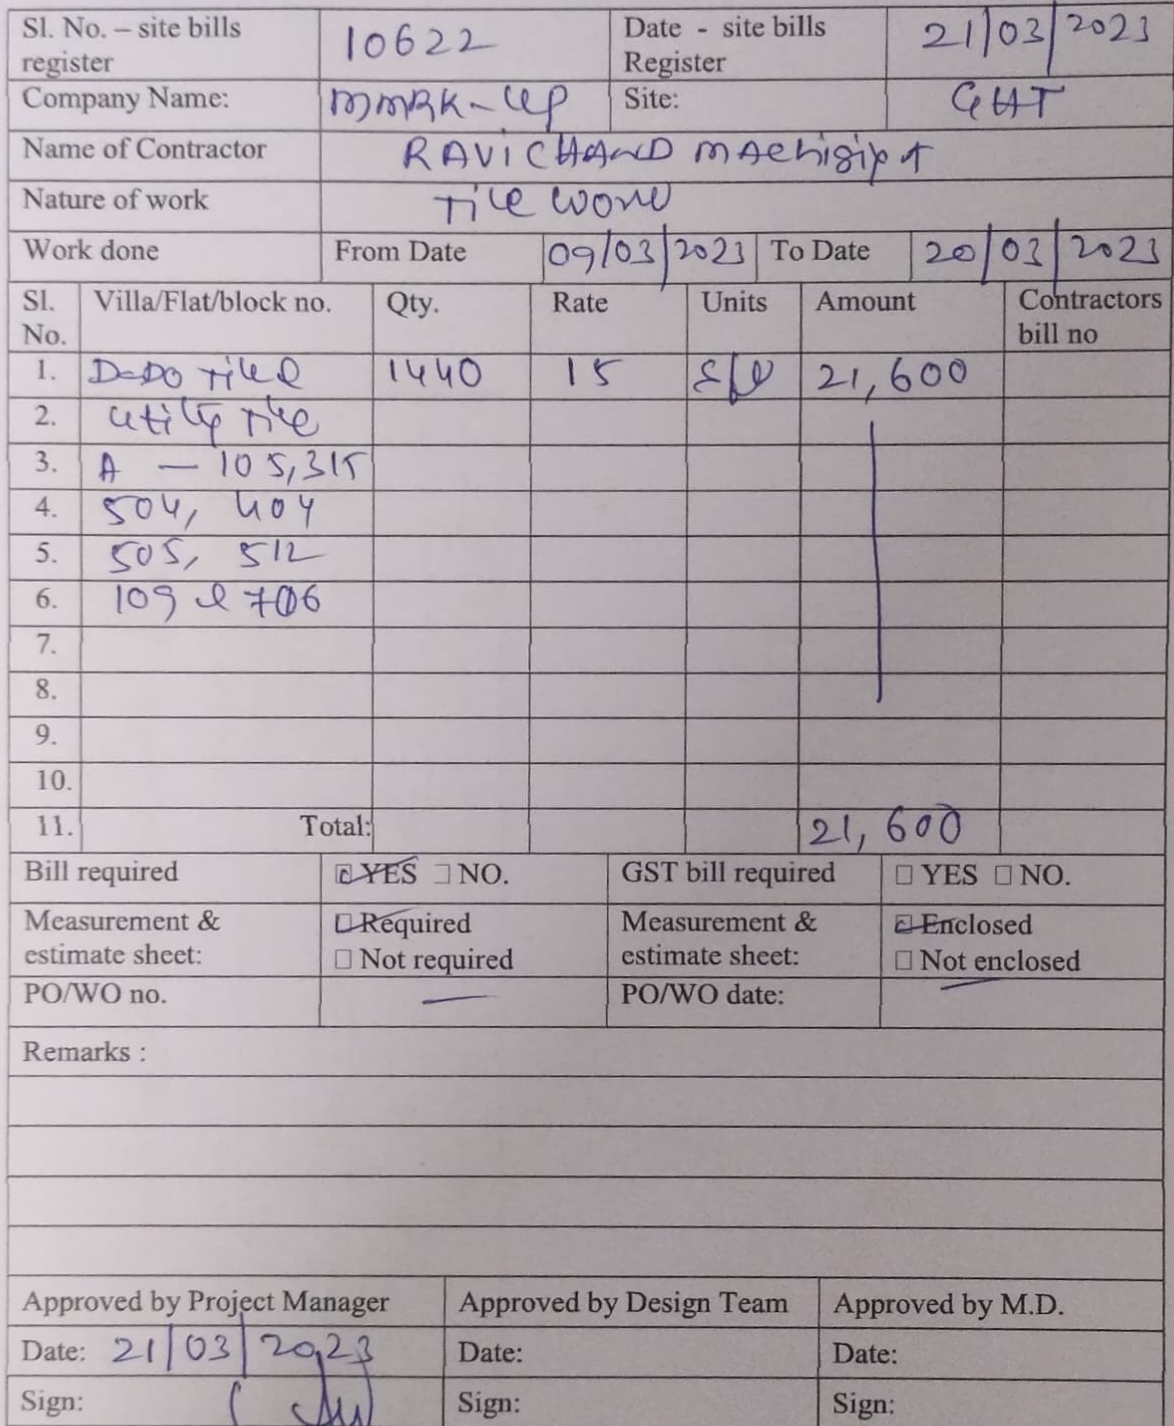 Sl. No. – site bills register 10622 Date - site bills Register 21/03/2023
Company Name: MMRK-UP Site: GHT
Name of Contractor RAVICHAND
Nature of work Tile work
Work done From Date 09/03/2023 To Date 20/03/2023
Sl. No. Villa/Flat/block no. Qty. Rate Units Amount Contractors bill no
1. DADO Tile 1440 15 21,600
2. Tile
3. A — 105,315
4. 504, 404
5. 505, 512
6. 109 & 706
7.
8.
9.
10.
11. Total: 21,600
Bill required YES NO. GST bill required YES NO.
Measurement & estimate sheet: Required Not required Measurement & estimate sheet: Enclosed Not enclosed
PO/WO no. — PO/WO date: —
Remarks :
Approved by Project Manager Approved by Design Team Approved by M.D.
Date: 21/03/2023 Date: Date:
Sign: Sign: Sign: